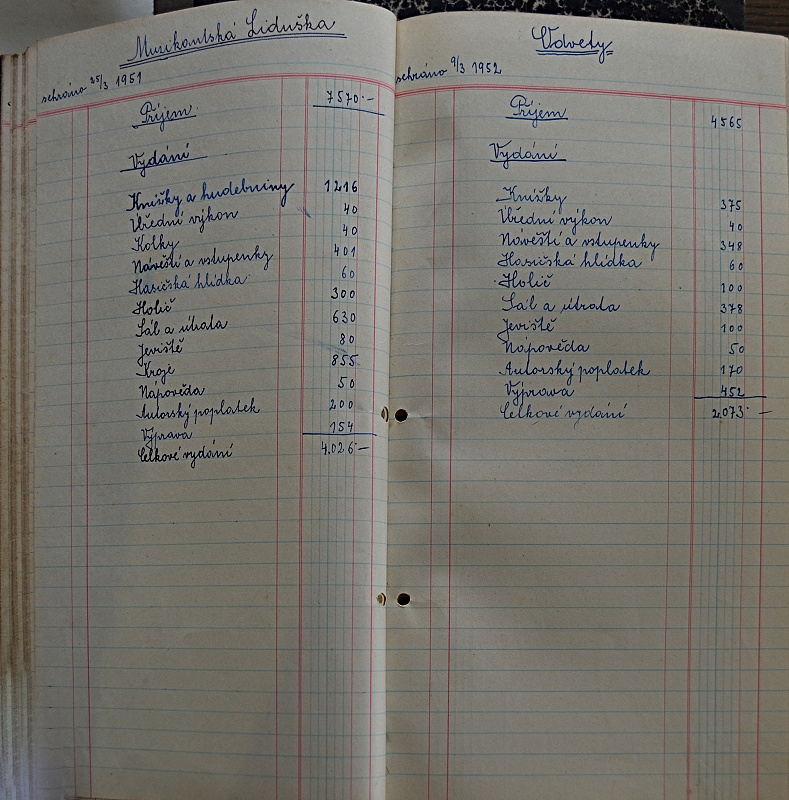 Muzikantská Liduška
sehráno 25/3 1951
Příjem 7570·-
Vydání
Knížky a hudebniny 1216
Úřední výkon 40
Kolky 40
Návěští a vstupenky 401
Hasičská hlídka 60
Holič 300
Sál a útrata 630
Jeviště 80
Kroje 855
Nápověda 50
Autorský poplatek 200
Výprava 154
Celkové vydání 4.026·-
Odvety
sehráno 9/3 1952
Příjem 4565
Vydání
Knížky 375
Úřední výkon 40
Návěští a vstupenky 348
Hasičská hlídka 60
Holič 100
Sál a útrata 378
Jeviště 100
Nápověda 50
Autorský poplatek 170
Výprava 452
Celkové vydání 2.073·-